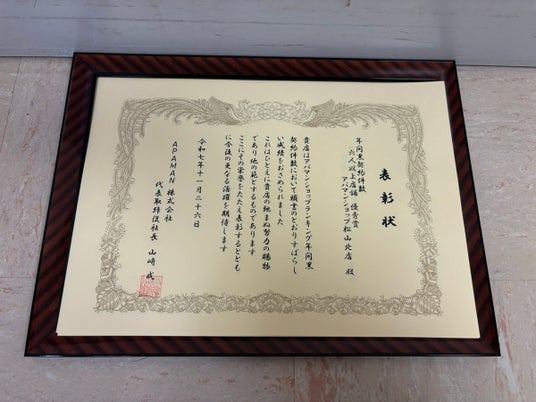 表彰状
年間黒契約件数
六人以上店舗 優秀賞
アパマンショップ松山北店 殿
貴店はアパマンショップランキング年間黒
契約件数において頭書のとおりすばらし
い成績をおさめられました
これはひとえに貴店の絶まぬ努力の賜物
であり他の範とするものであります
ここにその栄誉をたたえ表彰するととも
に今後の更なる活躍を期待します
令和七年十一月二十六日
APAMAN 株式会社
代表取締役社長 山崎 戒